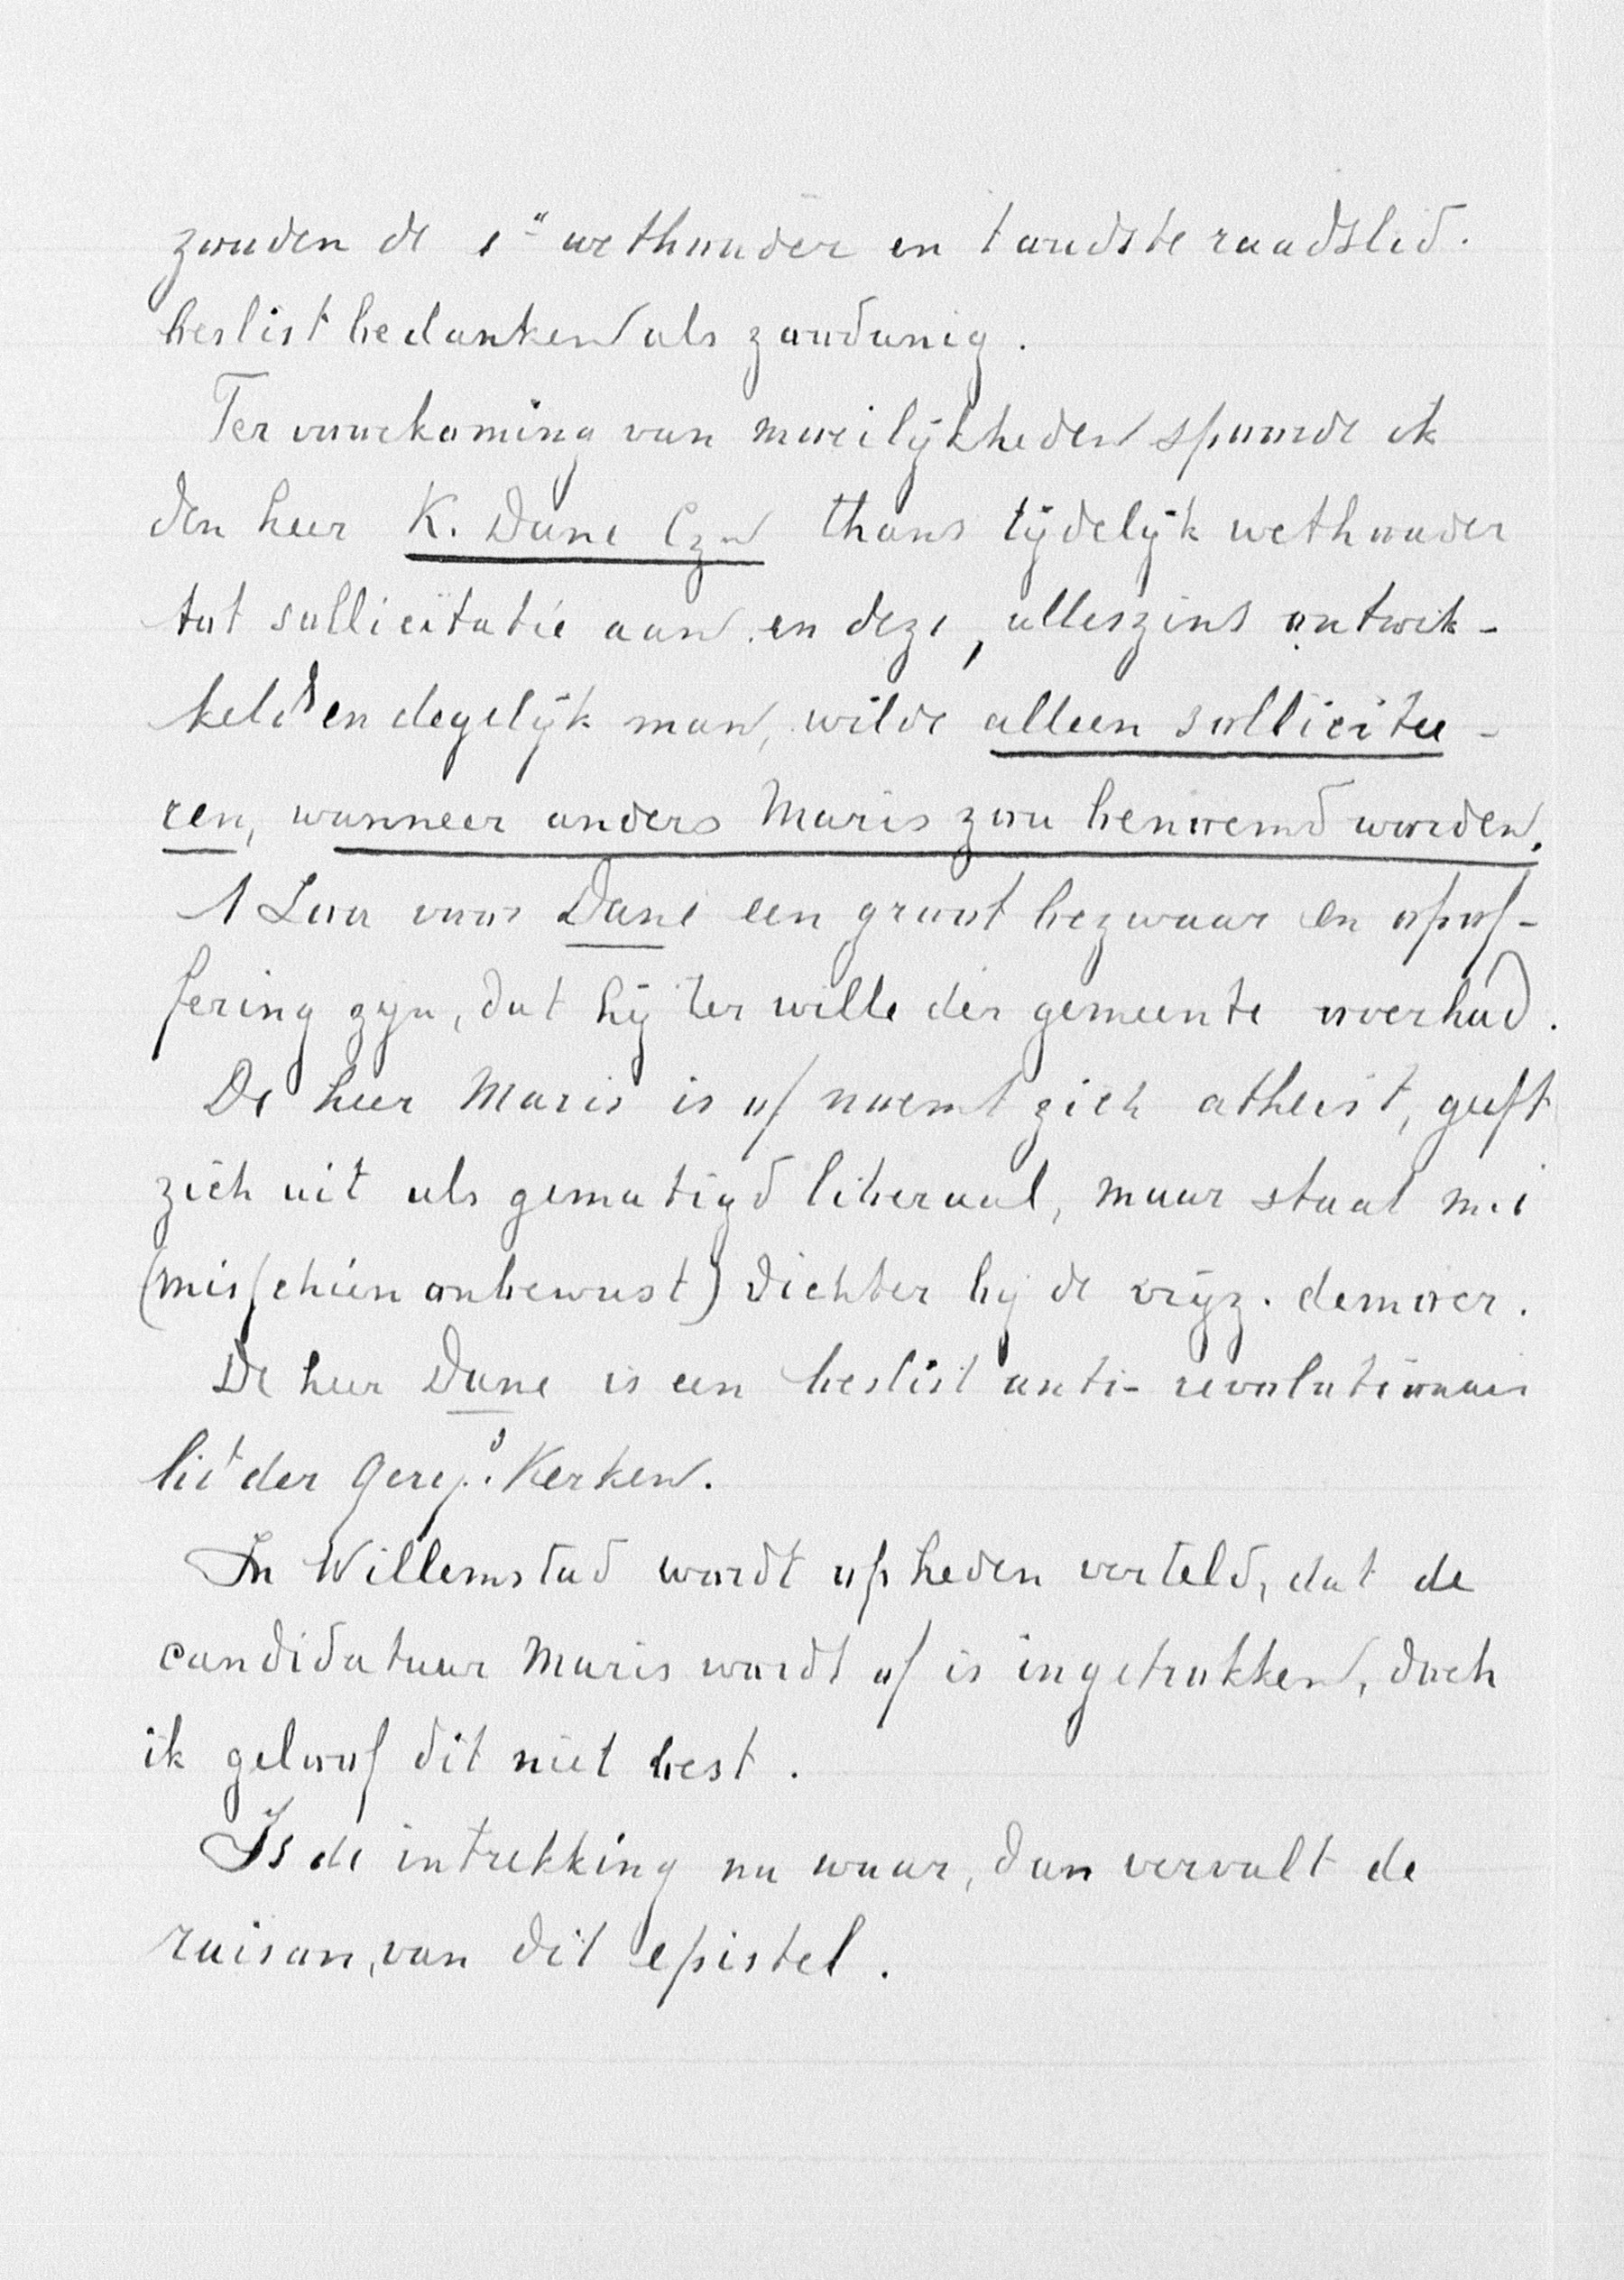 zouden de 1e wethouder en t oudste raadslid.
beslist bedanken als zoodanig.
Ter voorkoming van moeilijkheden spoorde ik
den heer K. Dane Czn thans tijdelijk wethouder
tot sollicitatie aan en deze, alleszins ontwik-
keld en degelijk man, wilde alleen sollicitee-
ren, wanneer anders Maris zou benoemd worden.
't Zou voor Dane een groot bezwaar en opof-
fering zijn, dat hij ter wille der gemeente overhad.
De heer Maris is of noemt zich atheist, geeft
zich uit als gematigd liberaal, maar staat m.i
(misschien onbewust) dichter bij de vrijz. democr.
De heer Dane is een beslist anti-revolutionair
lid der Geref.d Kerken.
In Willemstad wordt op heden verteld, dat de
candidatuur Maris wordt of is ingetrokken, doch
ik geloof dit niet best.
Is de intrekking nu waar, dan vervalt de
raison, van dit epistel.